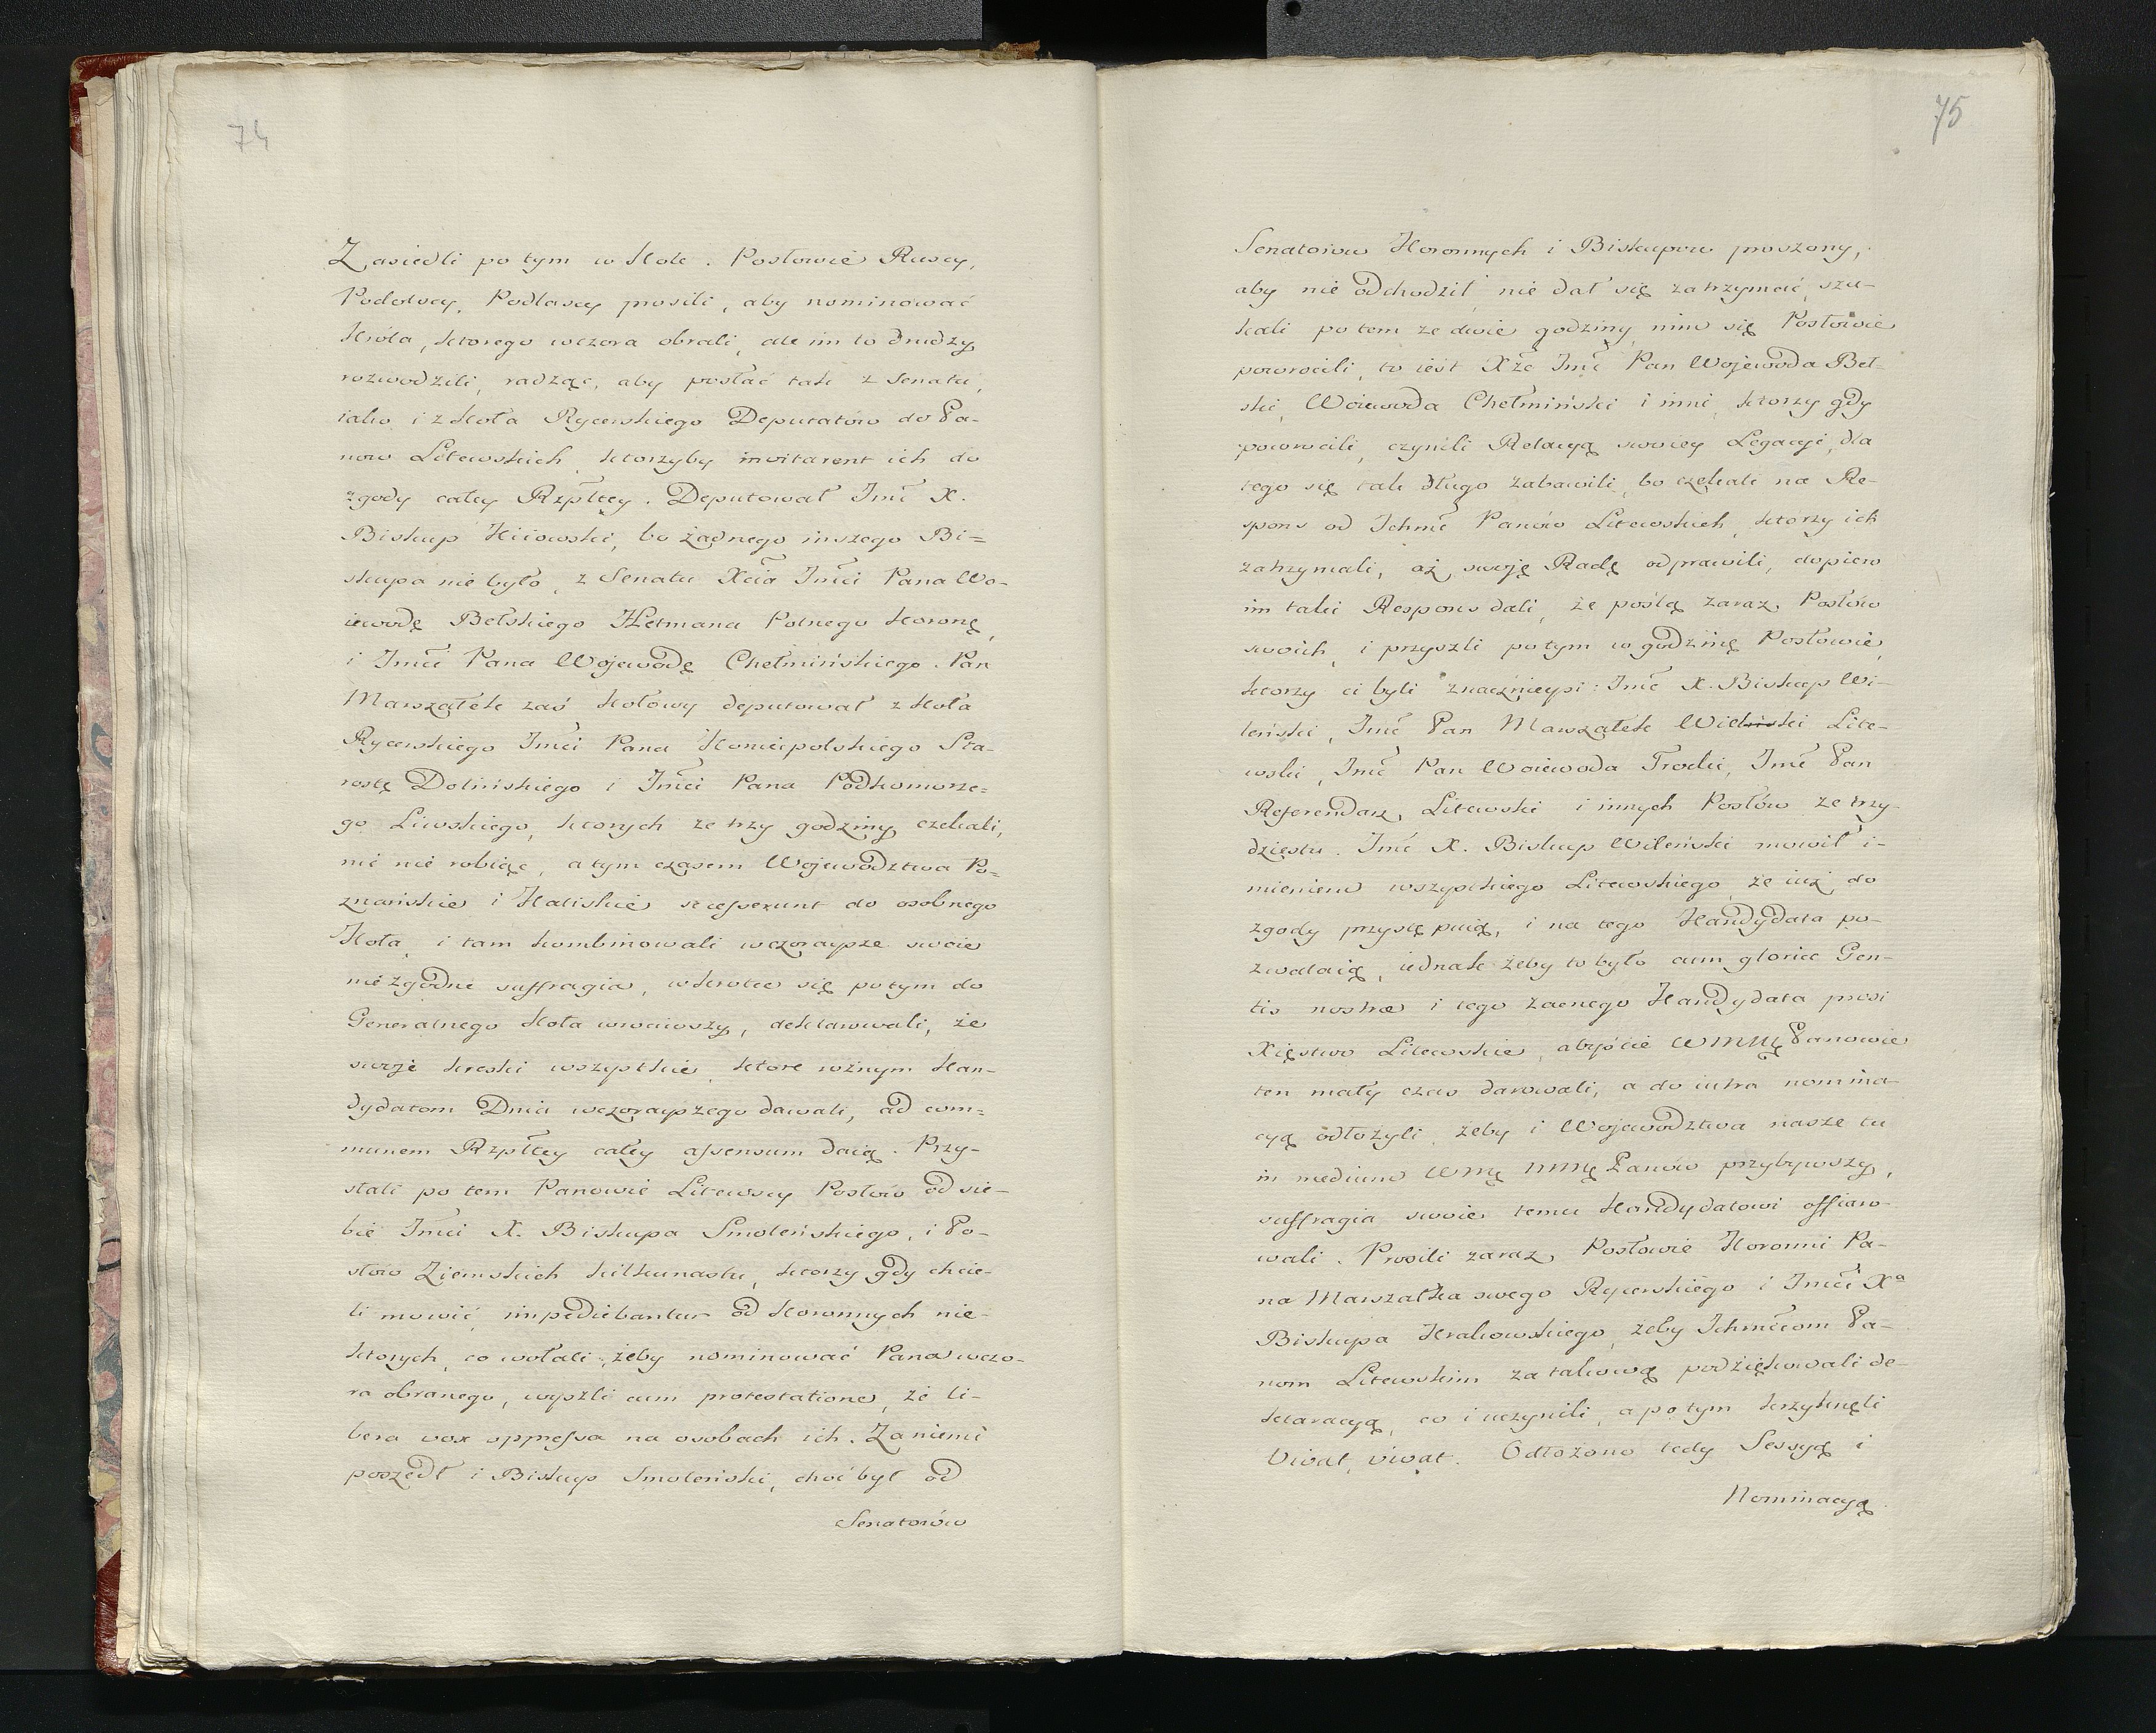 74
Zasiedli po tym w Kole. Posłowie Ruscy,
Podolscy, Podlascy prosili, aby nominować
Króla, ktorego wczora obrali, ale im to drudzy
rozwodzili, radząc, aby posłać tak z Senatu,
iako i z Koła Rycerskiego Deputatów do Pa-
now Litewskich, ktorzyby invitarent ich do
zgody całey Rzpltey. Deputował Jmć X.
Biskup Kiiowski, bo żadnego inszego Bi=
skupa nie było, z Senatu Xcia Jmći Pana Wo-
iewodę Bełskiego Hetmana Polnego Koronę,
i Jmći Pana Wojewodę Chełmińskiego. Pan
Marszałek zaś kołowy deputował z Koła
Rycerskiego Jmći Pana Koniecpolskiego Sta-
rostę Dolińskiego i Jmći Pana Podkomorze=
go Liwskiego, ktorych ze trzy godziny czekali,
nic nie robiąc, a tym czasem Wojewodztwa Po=
znańskie i Kaliskie secesserunt do osobnego
Koła, i tam kombinowali wczoraysze swoie
niezgodne suffragia, wkrotce się po tym do
Generalnego Koła wrociwszy, deklarowali, że
swoje kreski wszystkie, ktore rożnym Kan-
dydatom Dnia wczorayszego dawali, ad com=
munem Rzpltey całey assensum daią. Przy-
słali po tem Panowie Litewscy Posłow od sie-
bie Jmći X. Biskupa Smoleńskiego, i Po-
słow Ziemskich kilkunastu, ktorzy gdy chcie-
li mowić, impediebantur od Koronnych nie-
ktorych, co wołali, żeby nominować Pana wczo-
ra obranego, wyszli cum protestatione, że li-
bera vox oppressa na osobach ich. Za niemi
poszedł i Biskup Smoleński, choć był od
Senatorów
75
Senatorow Koronnych i Biskupow proszony,
aby nie odchodził, nie dał się zatrzymać, cze-
kali po tem ze dwie godziny, nim się Posłowie
powrocili, to iest Xże Jmć Pan Wojewoda Beł-
ski, Woiewoda Chełmiński i inni, ktorzy gdy
powrocili, czynili Relacyą swoiey Legacyi, dla
tego się tak długo zabawili, bo czekali na Re-
spons od Ichmć Panów Litewskich, ktorzy ich
zatrzymali, aż swoję Radę odprawili, dopiero
im taki Respons dali, że poślą zaraz Posłow
swoich, i przyszli po tym w godzinę Posłowie,
ktorzy ci byli znacznieysi: Jmć X. Biskup Wi-
leński, Jmć Pan Marszałek Wielński Lite-
wski, Jmć Pan Woiewoda Trocki, Jmć Pan
Referendarz Litewski i innych Posłów ze trzy-
dziestu. Jmć X. Biskup Wileński mowił i-
mieniem wszystkiego Litewskiego, że iuż do
zgody przystępuią, i na tego Kandydata po-
zwalaią, iednak żeby to było cum gloria Gen-
tis nostrae i tego zacnego Kandydata prosi
Xięstwo Litewskie, abyście WMMę Panowie
ten mały czas darowali, a do iutra nomina-
cyą odłożyli, żeby i Wojewodztwa nasze tu
in medium WMę MMę Panów przybywszy,
suffragia swoie temu Kandydatowi offiaro-
wali. Prosili zaraz Posłowie Koronni Pa-
na Marszałka swego Rycerskiego i Jmći Xa
Biskupa Krakowskiego, żeby Ichmćiom Pa-
nom Litewskim za takową podziękowali de-
klaracyą, co i uczynili, a po tym krzyknęli
Vivat, vivat. Odłożono tedy Sessyą i
Nominacyą